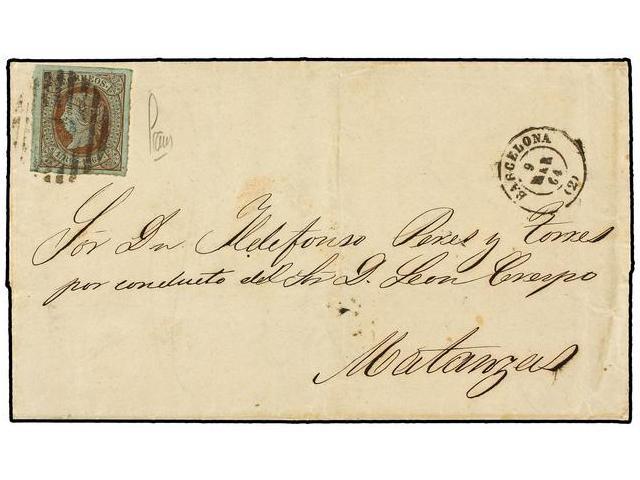 CORREOS
BARCELONA
9
MAR
64
(2)
Sor Dn Ildefonso Peres y Torres
por conducto del Sr D. Leon Crespo
Matanzas